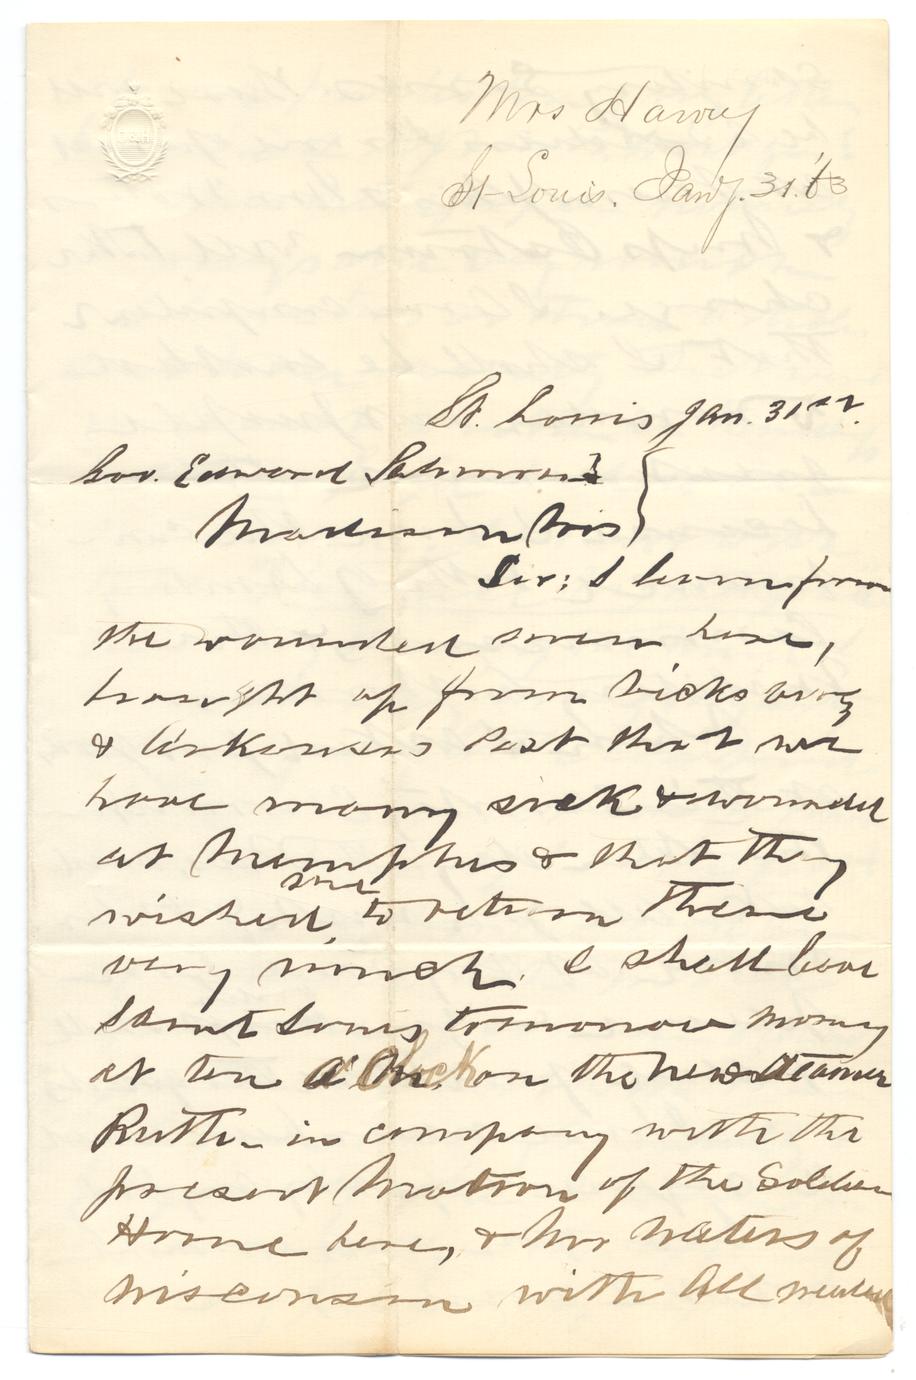 Mrs Harvey
St Louis. Jany. 31. '63
St. Louis Jan. 31st.
Gov. Edward Salomon
Madison Wis
Sir; I learn from
the wounded men here,
brought up from Vicksburg
& Arkansas Post that we
have many sick & wounded
at Memphis & that they
wished me to return there
very much. I shall leave
Saint Louis tomorrow morning
at ten o'clock on the new steamer
Ruth in company with the
present Matron of the Soldiers
Home here, & Mr Waters of
Wisconsin with all needed